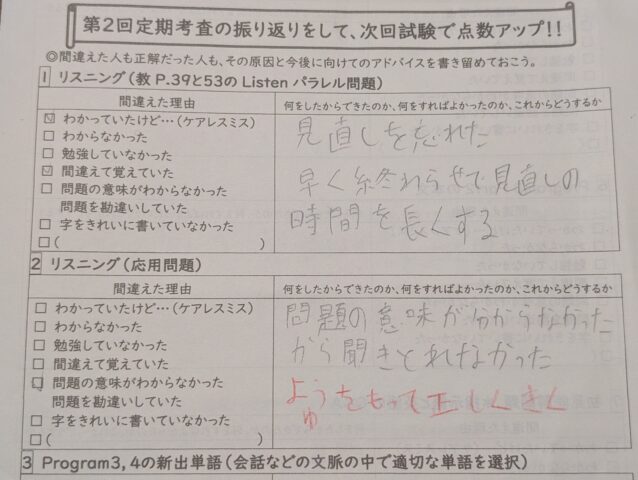 第2回定期考査の振り返りをして、次回試験で点数アップ!!
◎間違えた人も正解だった人も、その原因と今後に向けてのアドバイスを書き留めておこう。
1 リスニング（教 P.39と53の Listen パラレル問題）
間違えた理由
何をしたからできたのか、何をすればよかったのか、これからどうするか
☑ わかっていたけど…（ケアレスミス）
□ わからなかった
□ 勉強していなかった
☑ 間違えて覚えていた
□ 問題の意味がわからなかった
問題を勘違いしていた
□ 字をきれいに書いていなかった
□（ ）
見直しを忘れた
早く終わらせて見直しの
時間を長くする
2 リスニング（応用問題）
間違えた理由
何をしたからできたのか、何をすればよかったのか、これからどうするか
□ わかっていたけど…（ケアレスミス）
□ わからなかった
□ 勉強していなかった
□ 間違えて覚えていた
☑ 問題の意味がわからなかった
問題を勘違いしていた
□ 字をきれいに書いていなかった
□（ ）
問題の意味が分からなかった
から聞きとれなかった
よゆうをもって正しくきく
3 Program3, 4の新出単語（会話などの文脈の中で適切な単語を選択）